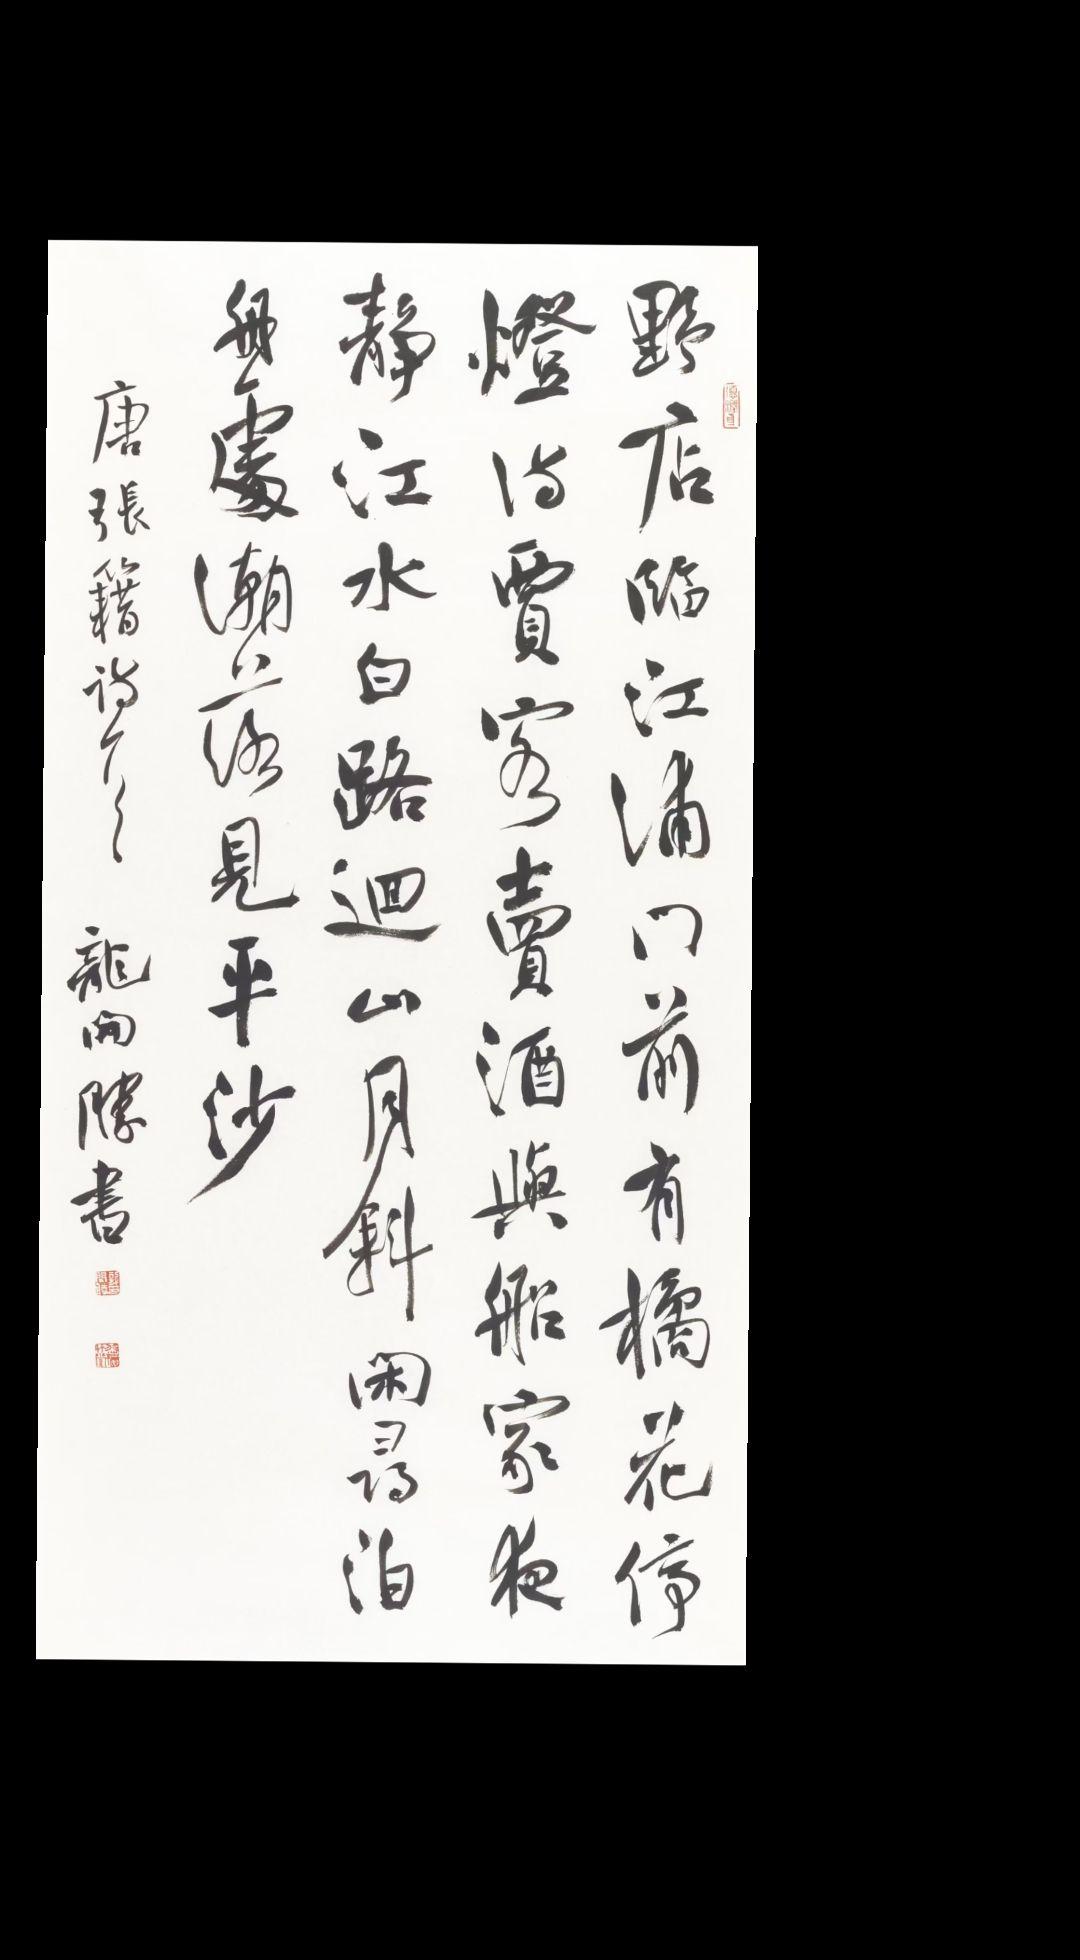 野店臨江浦門前有橘花停
燈待賈客賣酒與船家夜
靜江水白路迴山月斜閑尋泊
船處潮落見平沙
唐張籍詩一首 龍開勝書